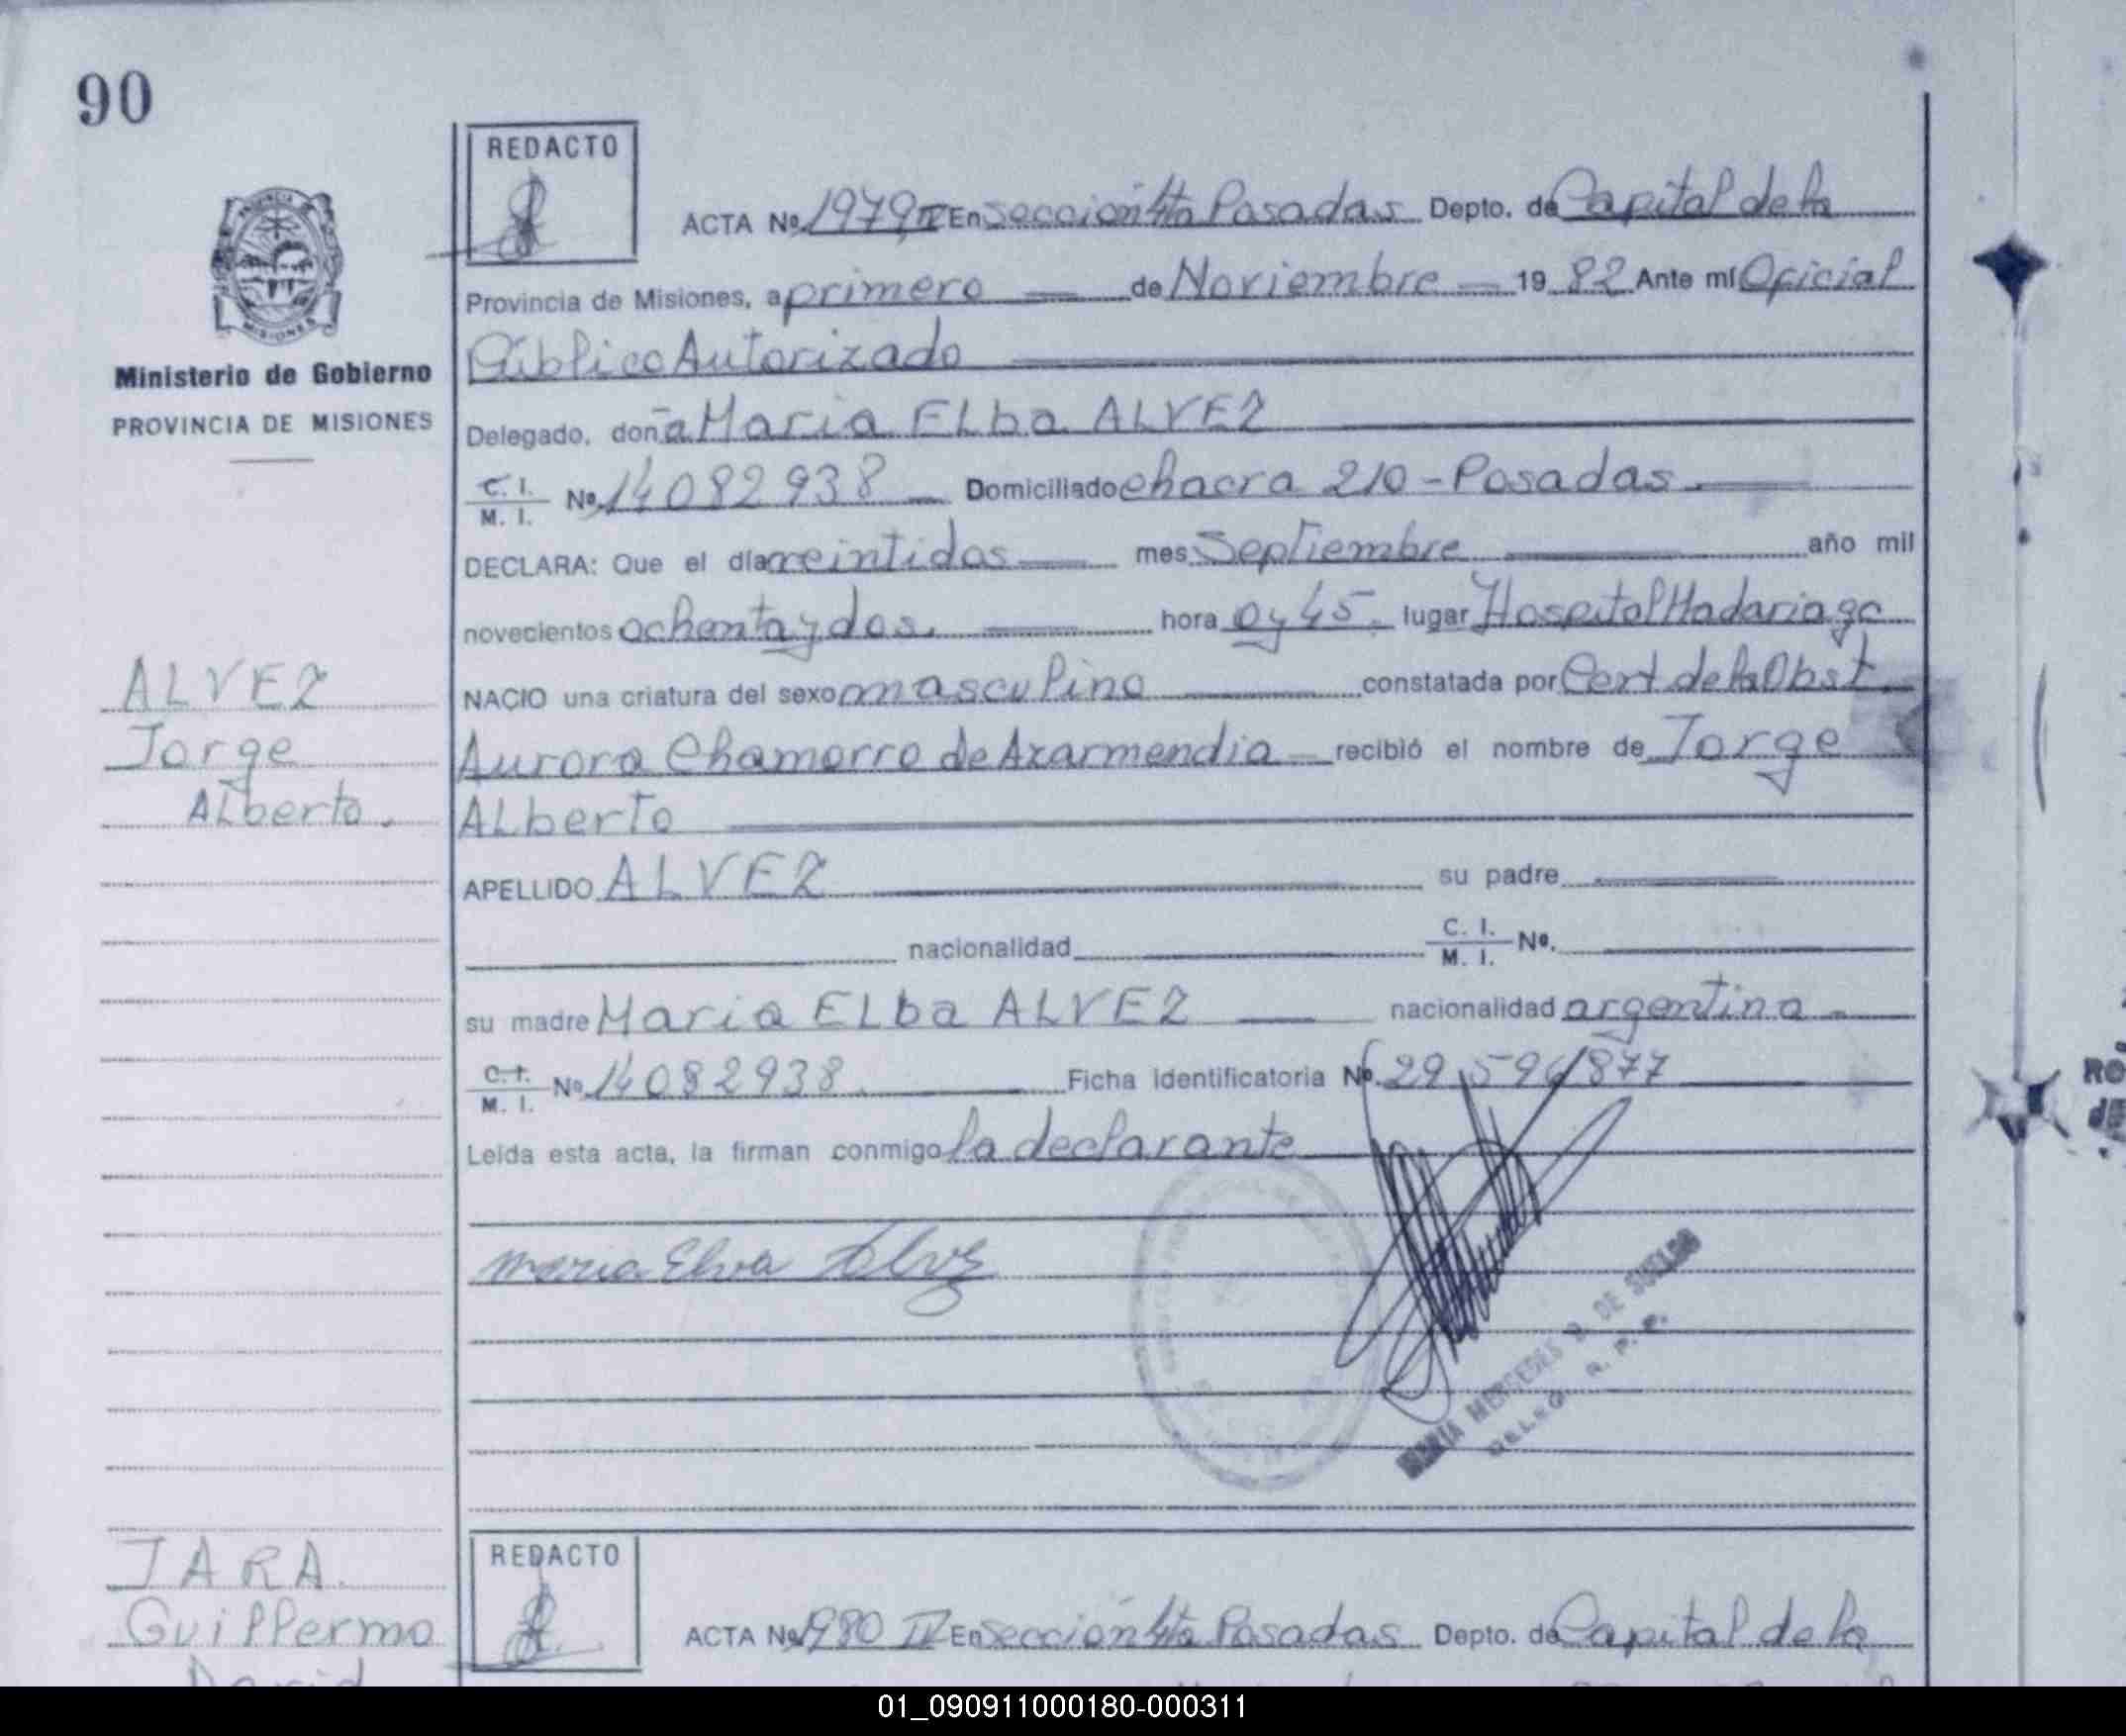 90
REDACTO
ACTA Nº 1979 IV En sección 4ta Posadas Depto. de Capital de la
Provincia de Misiones, a primero de Noviembre 19 82 Ante mí Oficial
Público Autorizado
Ministerio de Gobierno
PROVINCIA DE MISIONES
Delegado, doña Maria Elba ALVEZ
C. I.
M. I. Nº 14082938 Domiciliado chacra 210 - Posadas.
DECLARA: Que el día veintidos mes Septiembre año mil
novecientos ochenta y dos. hora 0 y 45. lugar Hospital Madariaga
ALVEZ
Jorge
Alberto.
NACIO una criatura del sexo masculino constatada por Cert de la Obst.
Aurora Chamorro de Azarmendia recibió el nombre de Jorge
Alberto
APELLIDO ALVEZ su padre
nacionalidad C. I.
M. I. Nº.
su madre Maria Elba ALVEZ nacionalidad argentina
C. I.
M. I. Nº 14082938. Ficha identificatoria Nº. 29.596/877
Leída esta acta, la firman conmigo la declarante
maria Elva Alvez
MARIA MERCEDES D. DE SUELDO
DELEG. R. P. P.
RO
dE
JARA.
Guillermo
David
REDACTO
ACTA Nº 1980 IV En sección 4ta Posadas Depto. de Capital de la
01_090911000180-000311